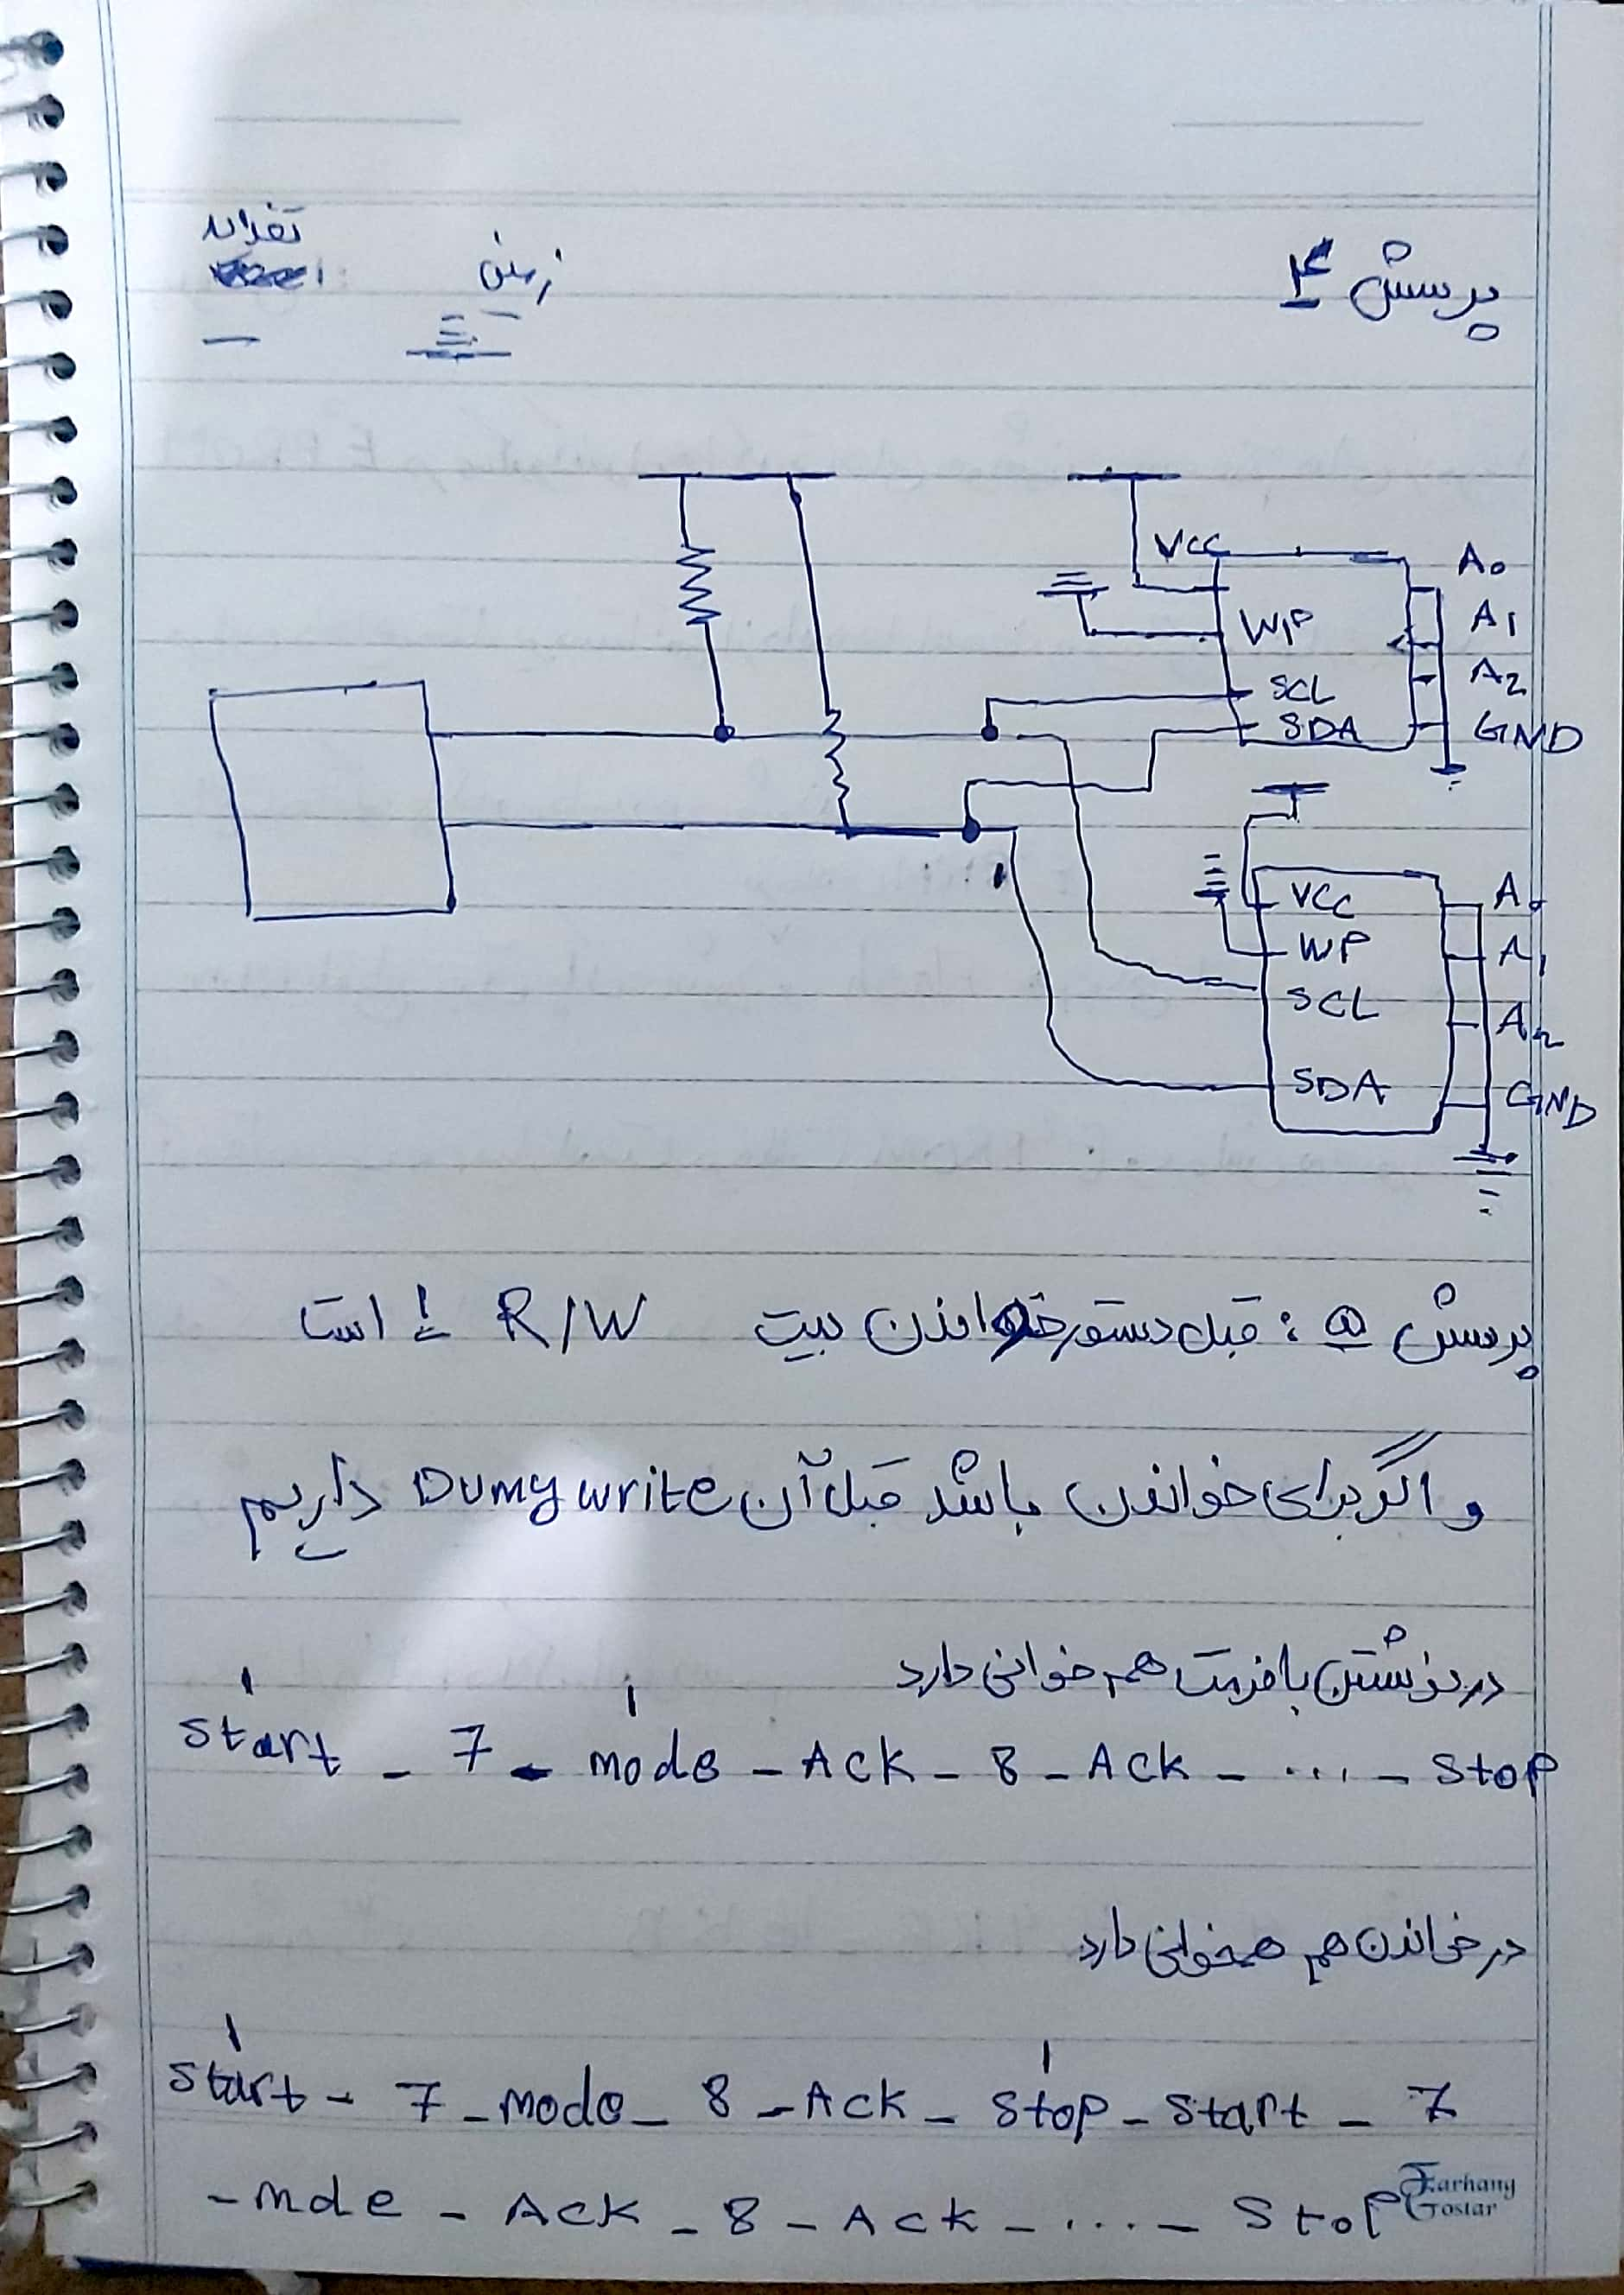 پرسش ۴
زمین
تغذیه
VCC
WP
SCL
SDA
A0
A1
A2
GND
VCC
WP
SCL
SDA
A0
A1
A2
GND
پرسش ۵ : قبل دستور خواندن بیت R/W 1 است
و اگر برای خواندن باشد قبل آن Dumy write داریم
در نوشتن با فرمت هم خوانی دارد
start - 7 - mode - Ack - 8 - Ack - .... - stop
در خواندن هم همخوانی دارد
start - 7 - mode - 8 - Ack - stop - start - 7
- mde - Ack - 8 - Ack - .... - stop
Farhang
Gostar